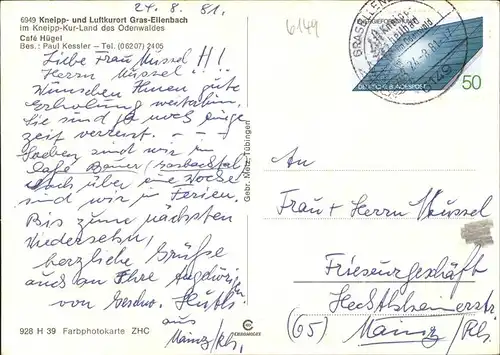 24. 8. 81.
6149
6949 Kneipp- und Luftkurort Gras-Ellenbach
im Kneipp-Kur-Land des Odenwaldes
Café Hügel
Bes.: Paul Kessler – Tel. (06207) 2405
Liebe Frau Mussel H!!
Herrn Mussel!!
Wünschen Ihnen gute
Erholung weiterhin,
Sie sind ja noch einige
Zeit verreist. - - -
Soeben sind wir im
Cafe Bauer
Noch über eine Woche
sind wir in Ferien.
Bis zum nächsten
Wiedersehn,
herzliche Grüße
auch an Ihre Angehörigen
von Geschw.
aus
Mainz/Rh.
928 H 39 Farbphotokarte ZHC
Gebr. Metz, Tübingen
DEUTSCHE BUNDESPOST
50
An
Frau + Herrn Mussel
Friseurgeschäft
Hechtsheimerstr.
(65) Mainz/Rh.